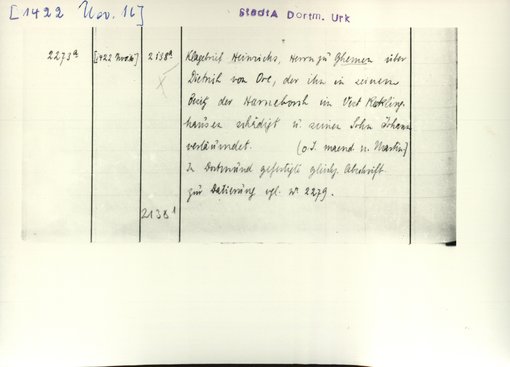 [1422 Nov. 16]
StadtA Dortm. Urk
2273a [1422 Nov. 16] 2138a Klagebrief Heinrichs, Herrn zu Ghemen über
Dietrich von Ore, der ihn in seinem
Besitz der Harneborsh im Vest Reckling-
hausen schädigt u. seinen Sohn Johann
verläumdet. (o J. maend. n. Martin)
In Dortmund gefertigte gleichz. Abschrift.
zur Datierung vgl. nr. 2279.
2138¹